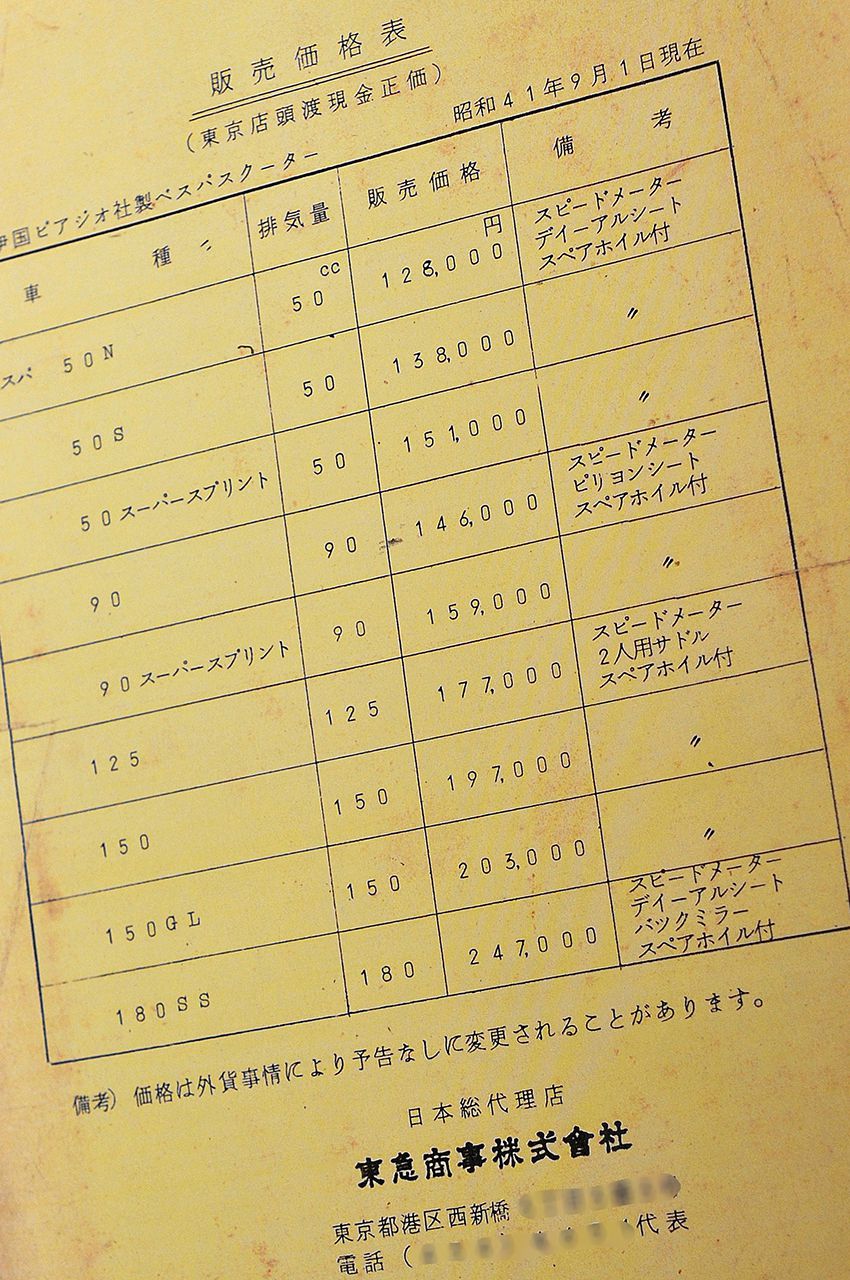 販売価格表
(東京店頭渡現金正価)
昭和41年9月1日現在
伊国ピアジオ社製ベスパスクーター
車種 排気量 販売価格 備考
スパ 50N 50cc 128,000円 スピードメーター
デイーアルシート
スペアホイル付
50S 50 138,000 〃
50スーパースプリント 50 151,000 〃
90 90 146,000 スピードメーター
ピリヨンシート
スペアホイル付
90スーパースプリント 90 159,000 〃
125 125 177,000 スピードメーター
2人用サドル
スペアホイル付
150 150 197,000 〃
150GL 150 203,000 〃
180SS 180 247,000 スピードメーター
デイーアルシート
バツクミラー
スペアホイル付
備考) 価格は外貨事情により予告なしに変更されることがあります。
日本総代理店
東急商事株式會社
東京都港区西新橋
電話( 代表